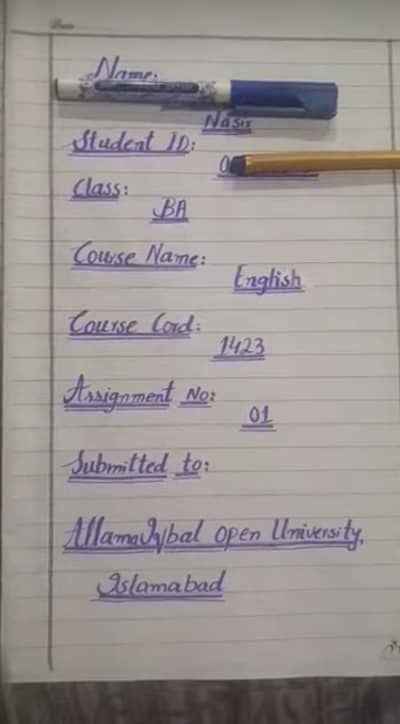 Name:
Nasir
Student ID:
Class:
BA
Course Name:
English
Course Cord:
1423
Assignment No:
01
Submitted to:
Allama Iqbal open University,
Islamabad